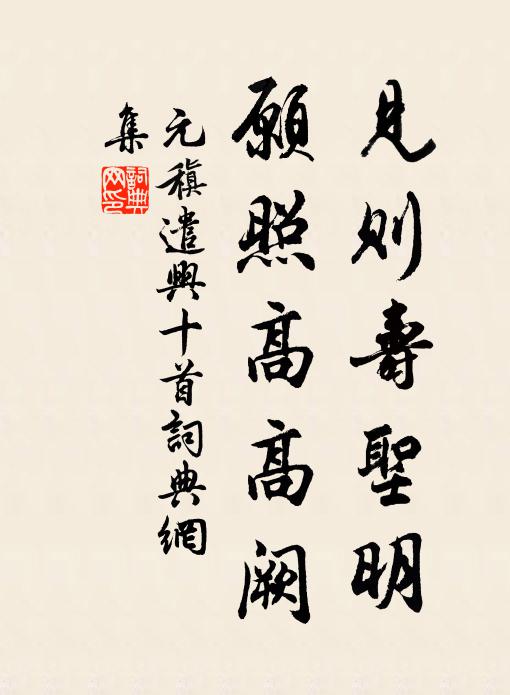 見則壽聖明
願照高高闕
元稹遣興十首詞典網
集
詞典
网印